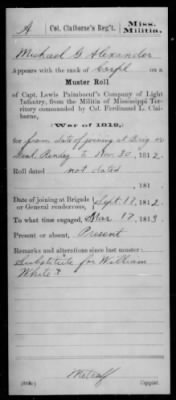 A | Col. Claiborne's Reg't. | Miss. Militia.
Michael G Alexander
Appears with the rank of Corpl on a
Muster Roll
of Capt. Lewis Paimboeuf's Company of Light
Infantry, from the Militia of Mississippi Ter-
ritory commanded by Col. Ferdinand L. Clai-
borne,
(War of 1812,)
for from date of joining at Brig or
Genl. Rendez to Nov 30, 1812.
Roll dated not dated
, 181 .
Date of joining at Brigade
or General rendezvous, Sept. 18, 1812.
To what time engaged, Mar 17, 1813
Present or absent, Present
Remarks and alterations since last muster:
Substitute for William
White
Metcalf
Copyist.